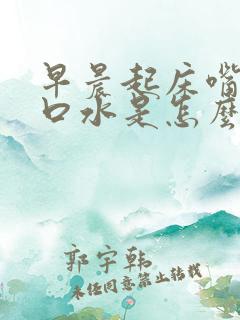 早晨起床嘴
口水是怎麽
郭宇韩
未经同意禁止转载